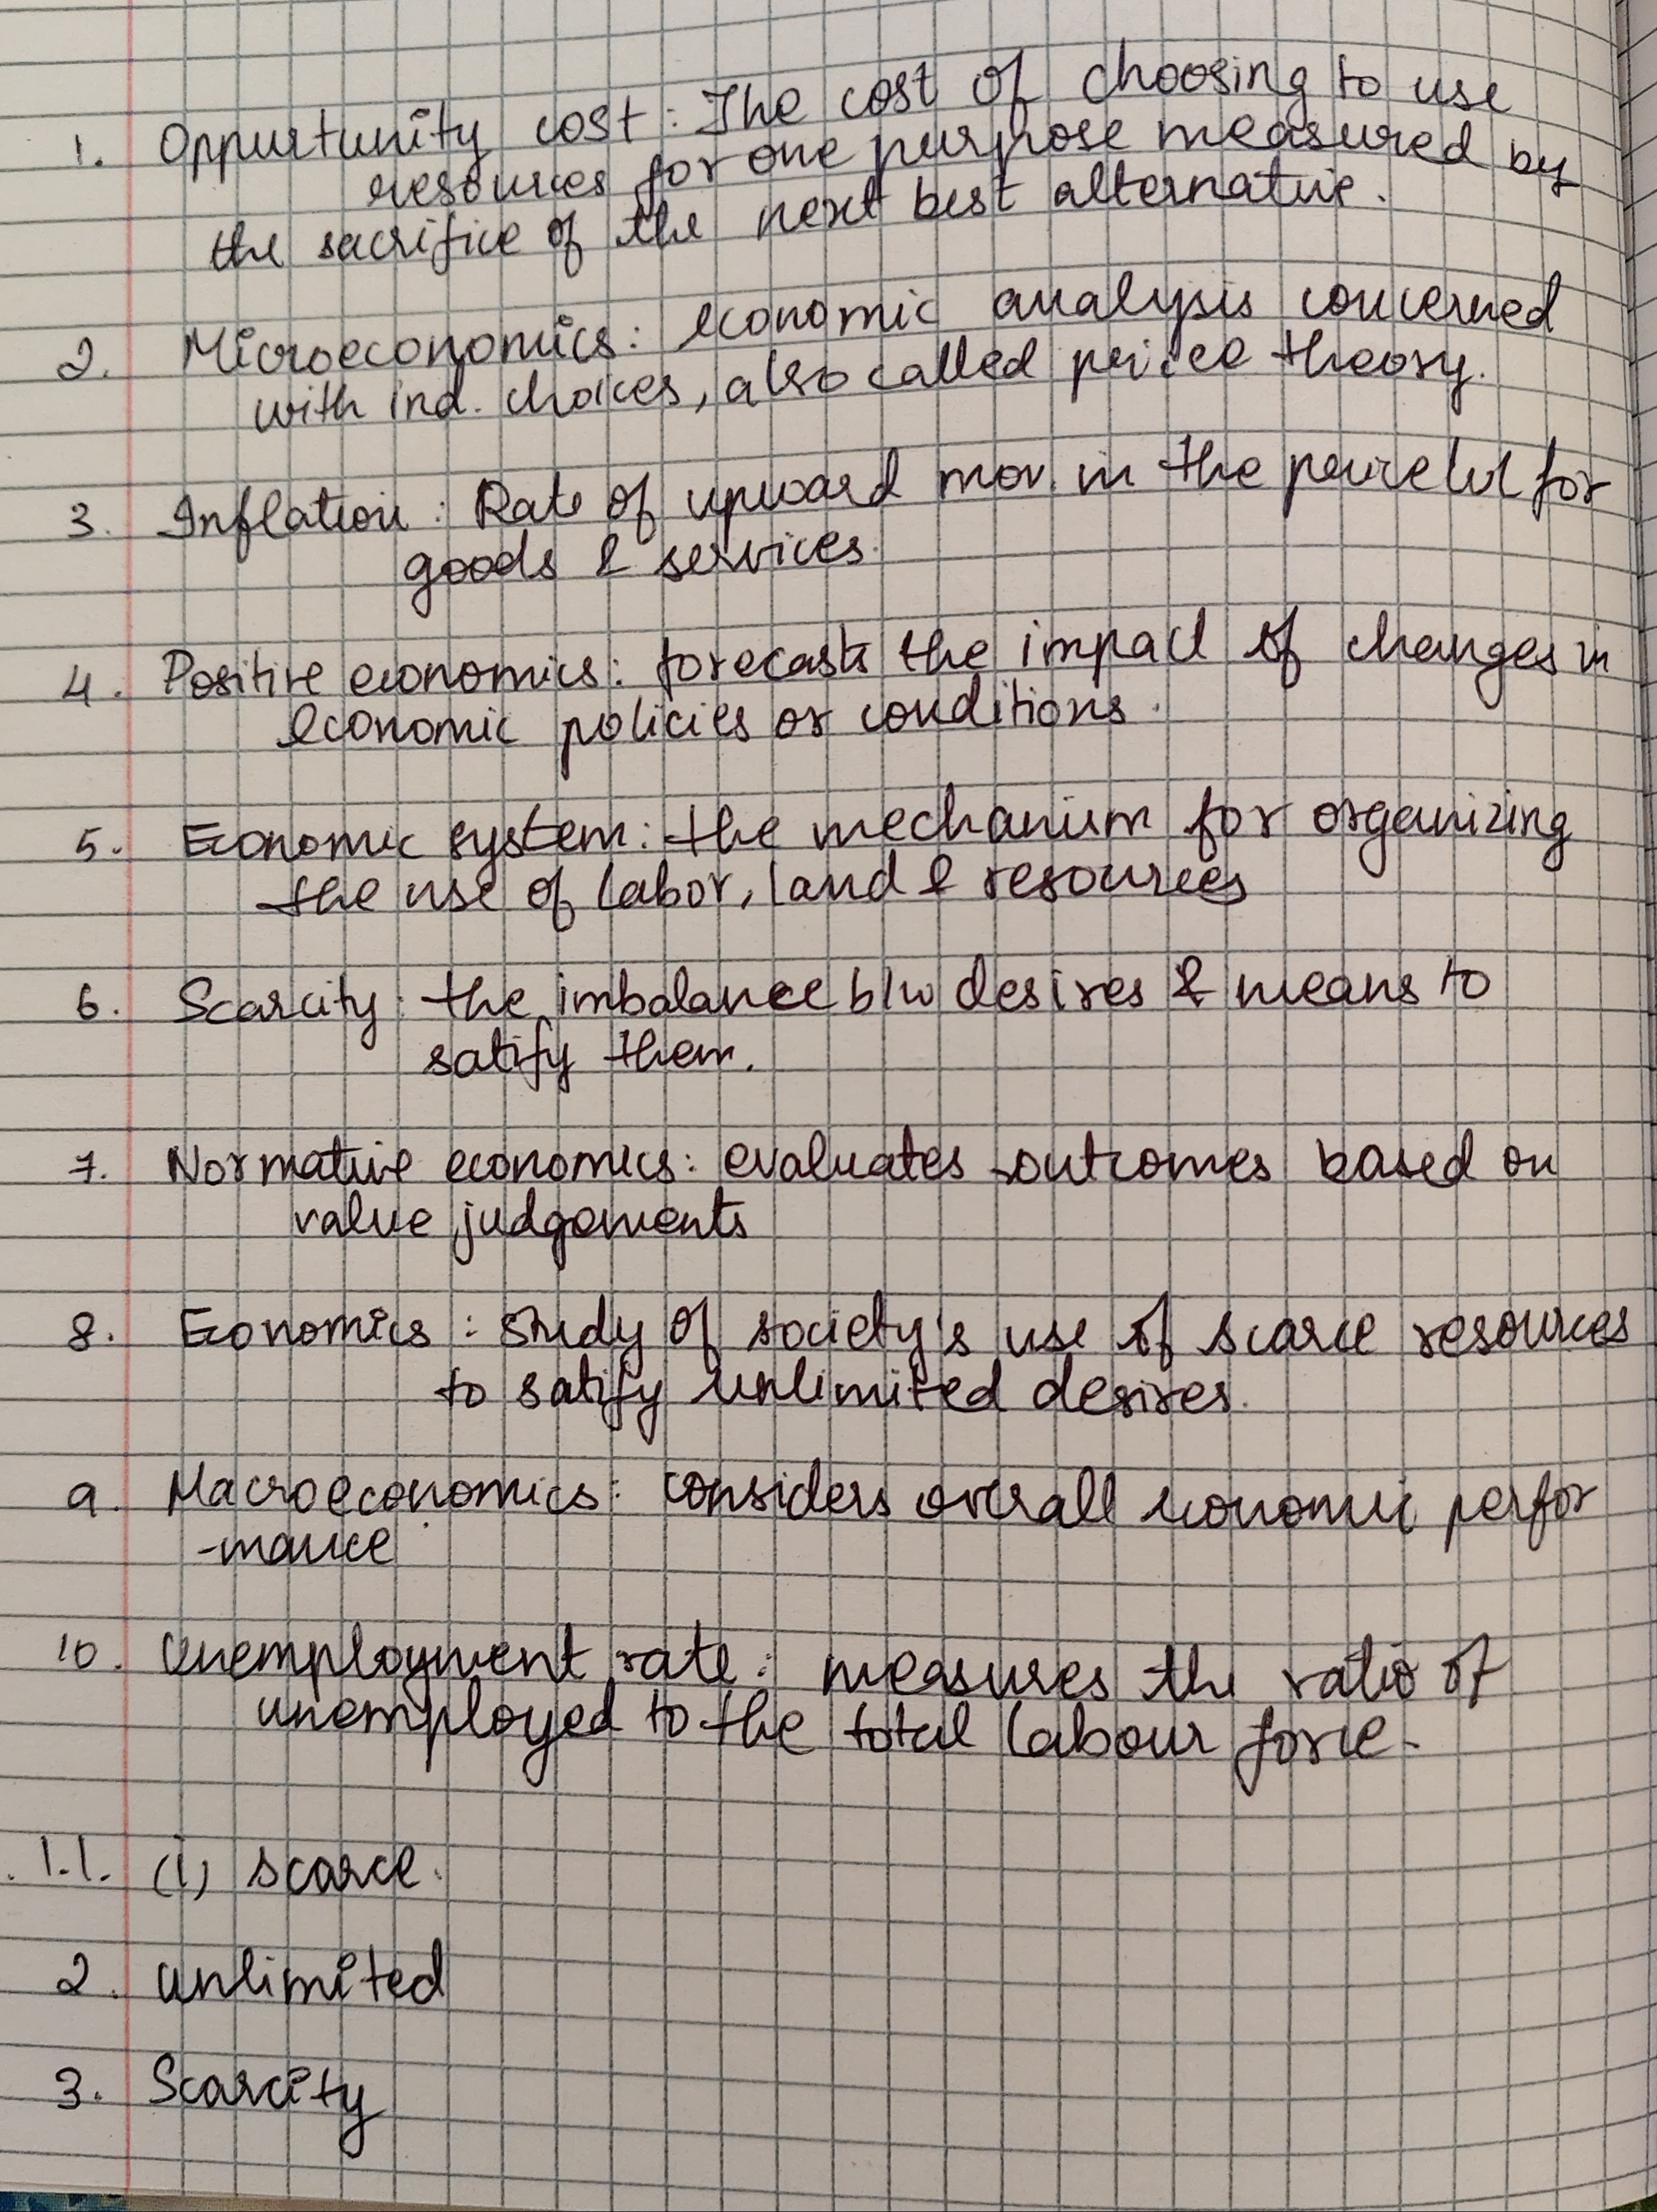 1. Oppurtunity cost: The cost of choosing to use
resources for one purpose measured by
the sacrifice of the next best alternative.
2. Microeconomics: economic analysis concerned
with ind. choices, also called price theory.
3. Inflation: Rate of upward mov. in the price lvl for
goods & services.
4. Positive economics: forecasts the impact of changes in
economic policies or conditions.
5. Economic system: the mechanism for organizing
the use of labor, land & resources
6. Scarcity: the imbalance b/w desires & means to
satify them.
7. Normative economics: evaluates outcomes based on
value judgements
8. Economics: study of society's use of scarce resources
to satify unlimited desires.
9. Macroeconomics: considers overall economic perfor
-mance
10. Unemployment rate: measures the ratio of
unemployed to the total labour force.
1.1. (i) scarce.
2. unlimited
3. Scarcity